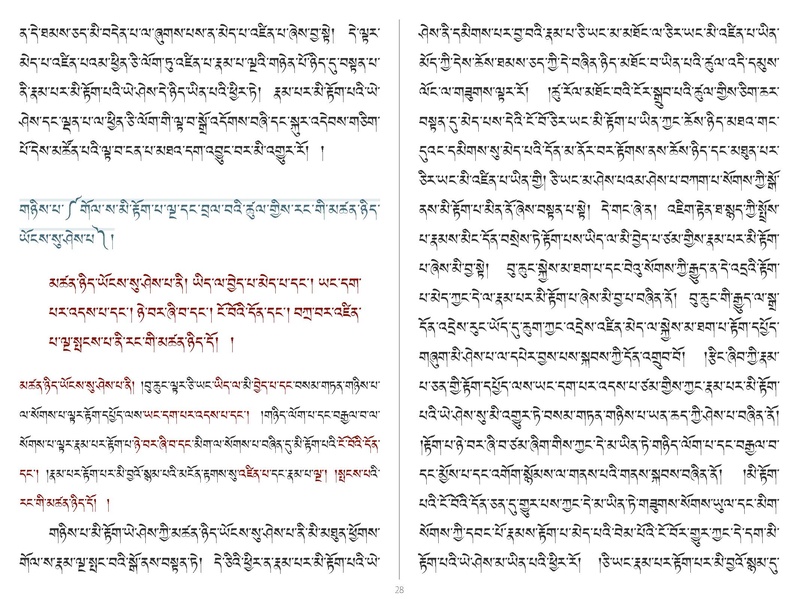 ན་དེ་ཐམས་ཅད་མི་བདེན་པ་ལ་ཞུགས་པས་ན་མེད་པ་འཛིན་པ་ཞེས་བྱ་སྟེ། དེ་ལྟར་
མེད་པ་འཛིན་པའམ་ཕྱིན་ཅི་ལོག་ཏུ་འཛིན་པ་རྣམ་པ་ལྔའི་གཉེན་པོ་ཉིད་དུ་བསྟན་པ་
ནི་རྣམ་པར་མི་རྟོག་པའི་ཡེ་ཤེས་དེ་ཉིད་ཡིན་པའི་ཕྱིར་ཏེ། རྣམ་པར་མི་རྟོག་པའི་ཡེ་
ཤེས་དང་ལྡན་པ་ལ་ཕྱིན་ཅི་ལོག་གི་ལྟ་བ་སྒྲོ་འདོགས་བཞི་དང་སྐུར་འདེབས་གཅིག་
པོ་དེས་མཚོན་པའི་ལྟ་བ་ངན་པ་མཐའ་དག་འབྱུང་བར་མི་འགྱུར་རོ། །
གཉིས་པ་༼གོལ་ས་མི་རྟོག་པ་ལྔ་དང་བྲལ་བའི་ཚུལ་གྱིས་རང་གི་མཚན་ཉིད་
ཡོངས་སུ་ཤེས་པ༽།
མཚན་ཉིད་ཡོངས་སུ་ཤེས་པ་ནི། ཡིད་ལ་བྱེད་པ་མེད་པ་དང་། ཡང་དག་
པར་འདས་པ་དང་། ཉེ་བར་ཞི་བ་དང་། ངོ་བོའི་དོན་དང་། བཀྲ་བར་འཛིན་
པ་ལྔ་སྤངས་པ་ནི་རང་གི་མཚན་ཉིད་དོ། །
མཚན་ཉིད་ཡོངས་སུ་ཤེས་པ་ནི། །བུ་ཆུང་ལྟར་ཅི་ཡང་ཡིད་ལ་མི་བྱེད་པ་དང་བསམ་གཏན་གཉིས་པ་
ལ་སོགས་པ་ལྟར་རྟོག་དཔྱོད་ལས་ཡང་དག་པར་འདས་པ་དང་། །གཉིད་ལོག་པ་དང་བརྒྱལ་བ་ལ་
སོགས་པ་ལྟར་རྣམ་པར་རྟོག་པ་ཉེ་བར་ཞི་བ་དང་མིག་ལ་སོགས་པ་བཞིན་དུ་མི་རྟོག་པའི་ངོ་བོའི་དོན་
དང་། །རྣམ་པར་རྟོག་པར་མི་བྱའོ་སྙམ་པའི་མངོན་རྟགས་སུ་འཛིན་པ་དང་རྣམ་པ་ལྔ། །སྤངས་པའི་
རང་གི་མཚན་ཉིད་དོ། །
གཉིས་པ་མི་རྟོག་ཡེ་ཤེས་ཀྱི་མཚན་ཉིད་ཡོངས་སུ་ཤེས་པ་ནི་མི་མཐུན་ཕྱོགས་
གོལ་ས་རྣམ་ལྔ་སྤང་བའི་སྒོ་ནས་བསྟན་ཏེ། དེ་ཅིའི་ཕྱིར་ན་རྣམ་པར་མི་རྟོག་པའི་ཡེ་
ཤེས་ནི་དམིགས་པར་བྱ་བའི་རྣམ་པ་ཅི་ཡང་མ་མཐོང་ལ་ཅིར་ཡང་མི་འཛིན་པ་ཡིན་
མོད་ཀྱི་དེས་ཆོས་ཐམས་ཅད་ཀྱི་དེ་བཞིན་ཉིད་མཐོང་བ་ཡིན་པའི་ཚུལ་འདི་དམུས་
ལོང་ལ་གཟུགས་ལྟར་རོ། །ཚུ་རོལ་མཐོང་བའི་ངོར་སྒྲུབ་པའི་ཚུལ་གྱིས་ཅིག་ཆར་
བསྟན་དུ་མེད་པས་དེའི་ངོ་བོ་ཅིར་ཡང་མི་རྟོག་པ་ཡིན་ཀྱང་ཆོས་ཉིད་མཐའ་གང་
དུའང་དམིགས་སུ་མེད་པའི་དོན་མ་ནོར་བར་རྟོགས་ནས་ཆོས་ཉིད་དང་མཐུན་པར་
ཅིར་ཡང་མི་འཛིན་པ་ཡིན་གྱི། ཅི་ཡང་མ་ཤེས་པའམ་ཤེས་པ་བཀག་པ་སོགས་ཀྱི་སྒོ་
ནས་མི་རྟོག་པ་མིན་ནོ་ཞེས་བསྟན་པ་སྟེ། དེ་གང་ཞེ་ན། འཇིག་རྟེན་ཐ་སྙད་ཀྱི་སྤྲོས་
པ་རྣམས་མིང་དོན་བསྲེས་ཏེ་རྟོག་པས་ཡིད་ལ་མི་བྱེད་པ་ཙམ་གྱིས་རྣམ་པར་མི་རྟོག་
པ་ཞེས་མི་བྱ་སྟེ། བུ་ཆུང་སྐྱེས་མ་ཐག་པ་དང་བེའུ་སོགས་ཀྱི་རྒྱུད་ན་དེ་འདྲའི་རྟོག་
པ་མེད་ཀྱང་དེ་ལ་རྣམ་པར་མི་རྟོག་པ་ཞེས་མི་བྱ་བ་བཞིན་ནོ། བུ་ཆུང་གི་རྒྱུད་ལ་སྒྲ་
དོན་འདྲེས་རུང་ཡོད་དུ་ཆུག་ཀྱང་འདྲེས་འཛིན་མེད་ལ་སྐྱེས་མ་ཐག་པ་རྟོག་དཔྱོད་
གཞུག་མི་ཤེས་པ་ལ་དཔེར་བྱས་པས་སྐབས་ཀྱི་དོན་འགྲུབ་བོ། །རྩིང་ཞིབ་ཀྱི་རྣམ་
པ་ཅན་གྱི་རྟོག་དཔྱོད་ལས་ཡང་དག་པར་འདས་པ་ཙམ་གྱིས་ཀྱང་རྣམ་པར་མི་རྟོག་
པའི་ཡེ་ཤེས་སུ་མི་འགྱུར་ཏེ་བསམ་གཏན་གཉིས་པ་ཡན་ཆད་ཀྱི་ཤེས་པ་བཞིན་ནོ།
།རྟོག་པ་ཉེ་བར་ཞི་བ་ཙམ་ཞིག་གིས་ཀྱང་དེ་མ་ཡིན་ཏེ་གཉིད་ལོག་པ་དང་བརྒྱལ་བ་
དང་མྱོས་པ་དང་འགོག་སྙོམས་ལ་གནས་པའི་གནས་སྐབས་བཞིན་ནོ། །མི་རྟོག་
པའི་ངོ་བོའི་དོན་ཅན་དུ་གྱུར་པས་ཀྱང་དེ་མ་ཡིན་ཏེ་གཟུགས་སོགས་ཡུལ་དང་མིག་
སོགས་ཀྱི་དབང་པོ་རྣམས་རྟོག་པ་མེད་པའི་བེམ་པོའི་ངོ་བོར་གྱུར་ཀྱང་དེ་དག་མི་
རྟོག་པའི་ཡེ་ཤེས་མ་ཡིན་པའི་ཕྱིར་རོ། །ཅི་ཡང་རྣམ་པར་རྟོག་པར་མི་བྱའོ་སྙམ་དུ་
28